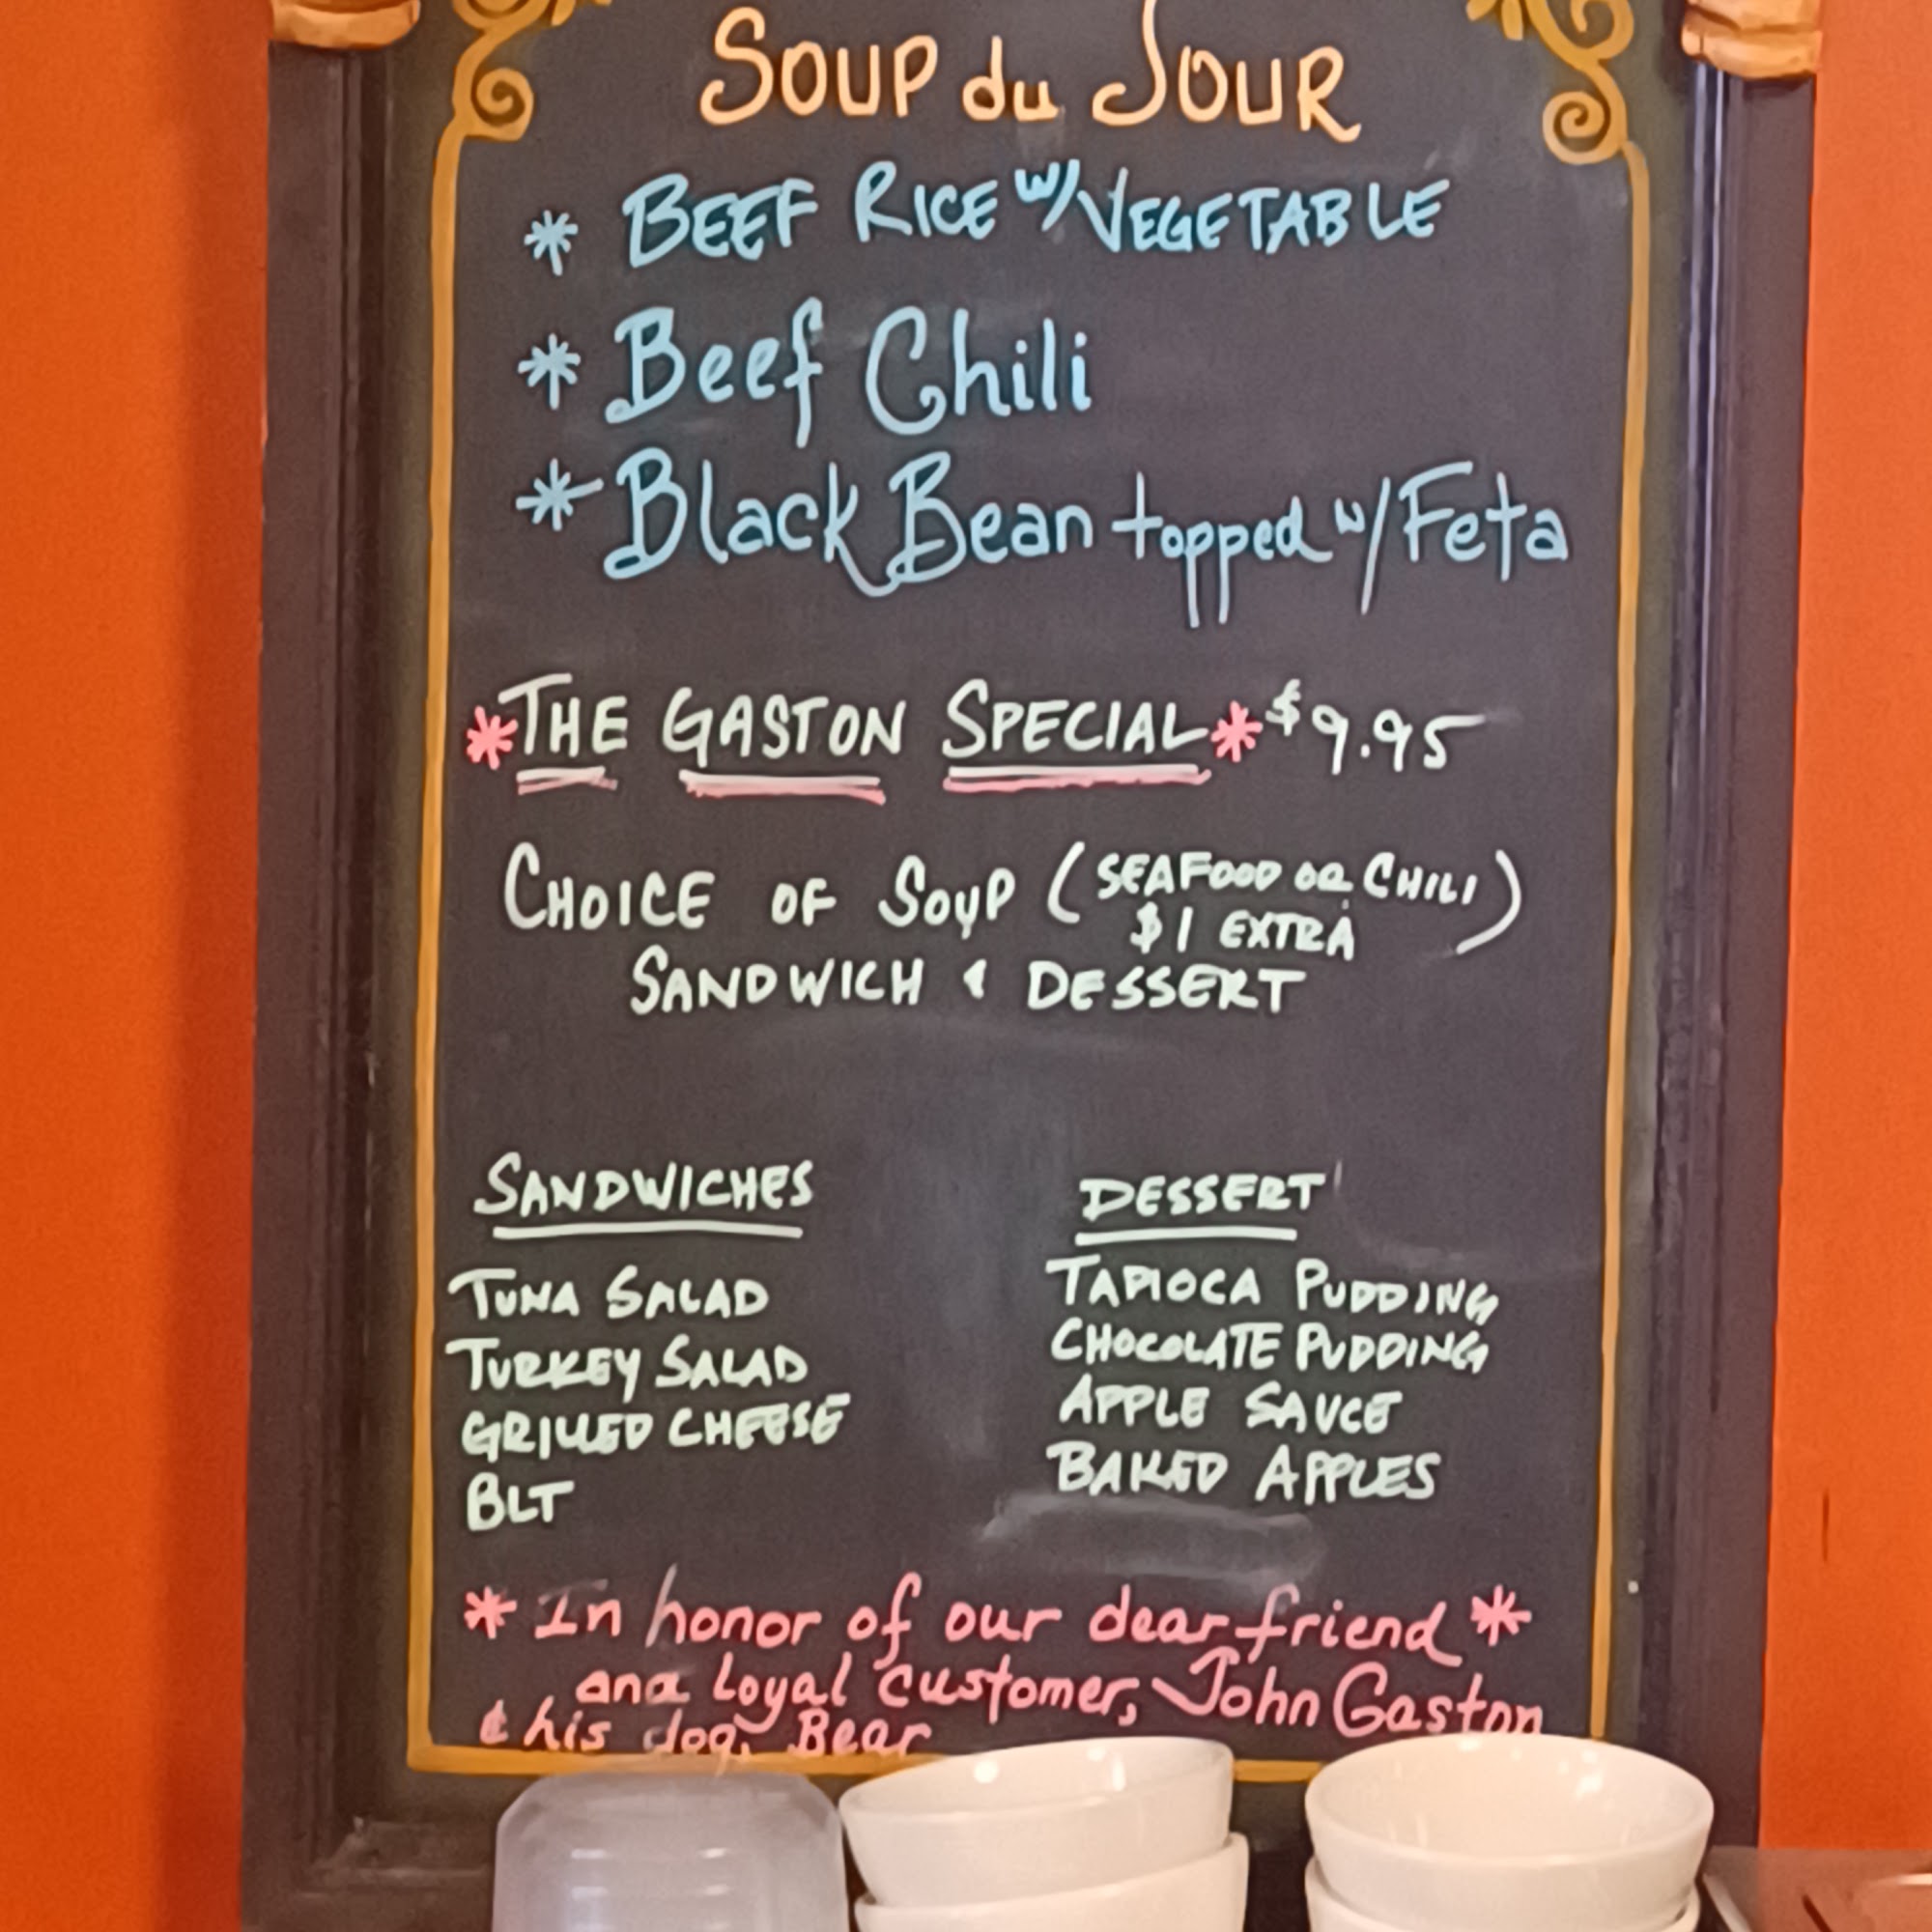 SOUP du JOUR
* BEEF RICE w/ VEGETABLE
* Beef Chili
* Black Bean topped w/ Feta
* THE GASTON SPECIAL * $9.95
CHOICE OF SOUP (SEAFOOD OR CHILI)
$1 EXTRA
SANDWICH & DESSERT
SANDWICHES
TUNA SALAD
TURKEY SALAD
GRILLED CHEESE
BLT
DESSERT
TAPIOCA PUDDING
CHOCOLATE PUDDING
APPLE SAUCE
BAKED APPLES
* In honor of our dear friend *
and Loyal customer, John Gaston
& his dog, Bear